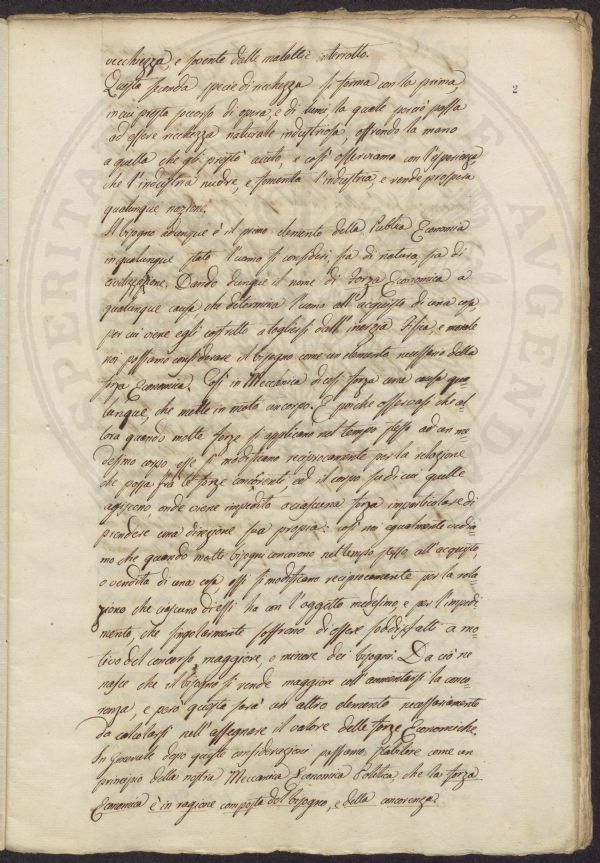 vecchiezza, e sovente dalle malattie interrotto.
2
Questa seconda specie di ricchezza si forma con la prima,
in cui presta soccorso di opera, e di lumi la quale perciò passa
ad essere ricchezza naturale industriosa, offrendo la mano
a quella che gli prestò aiuto, e così osserviamo con l'esperienza
che l'industria nudre, e fomenta l'industria, e rende prospera
qualunque nazione.
Il bisogno adunque è il primo elemento della Publica Economia
in qualunque stato l'uomo si consideri sia di natura, sia di
civilizzazione. Dando dunque il nome di Forza Economica a
qualunque causa che determina l'uomo all'acquisto di una cosa,
per cui viene egli costretto a togliersi dall'inerzia Fisica, e morale
noi possiamo considerare il bisogno come un elemento necessario della
forza Economica. Così in Meccanica dicesi forza una causa qua=
lunque, che mette in moto un corpo. E poiche osservasi che al=
lora quando molte forze si applicano nel tempo stesso ad un me=
desimo corpo esse si modificano reciprocamente per la relazione
che passa fra le forze concorenti, ed il corpo su di cui quelle
agiscono, onde viene impedito a ciascuna forza in particolare di
prendere una direzione sua propria: così noi egualmente vedia=
mo che quando molti bisogni concorono nel tempo stesso all'acquisto,
o vendita di una cosa essi si modificano reciprocamente per la rela=
zione che ciascuno di essi ha con l'oggetto medesimo, e per l'impedi=
mento, che singolarmente soffrono di essere soddisfatti a mo=
tivo del concorso maggiore, o minore dei bisogni. Da ciò ne
nasce che il bisogno si rende maggiore coll'aumentarsi la conco=
renza, e però questa sarà un altro elemento necessariamente
da calcolarsi nell'assegnare il valore delle forze Economiche.
In generale dopo queste considerazioni possiamo stabilire come un
principio della nostra Meccanica Economica Politica che la forza
Economica è in ragione composta del bisogno, e della concorenza.